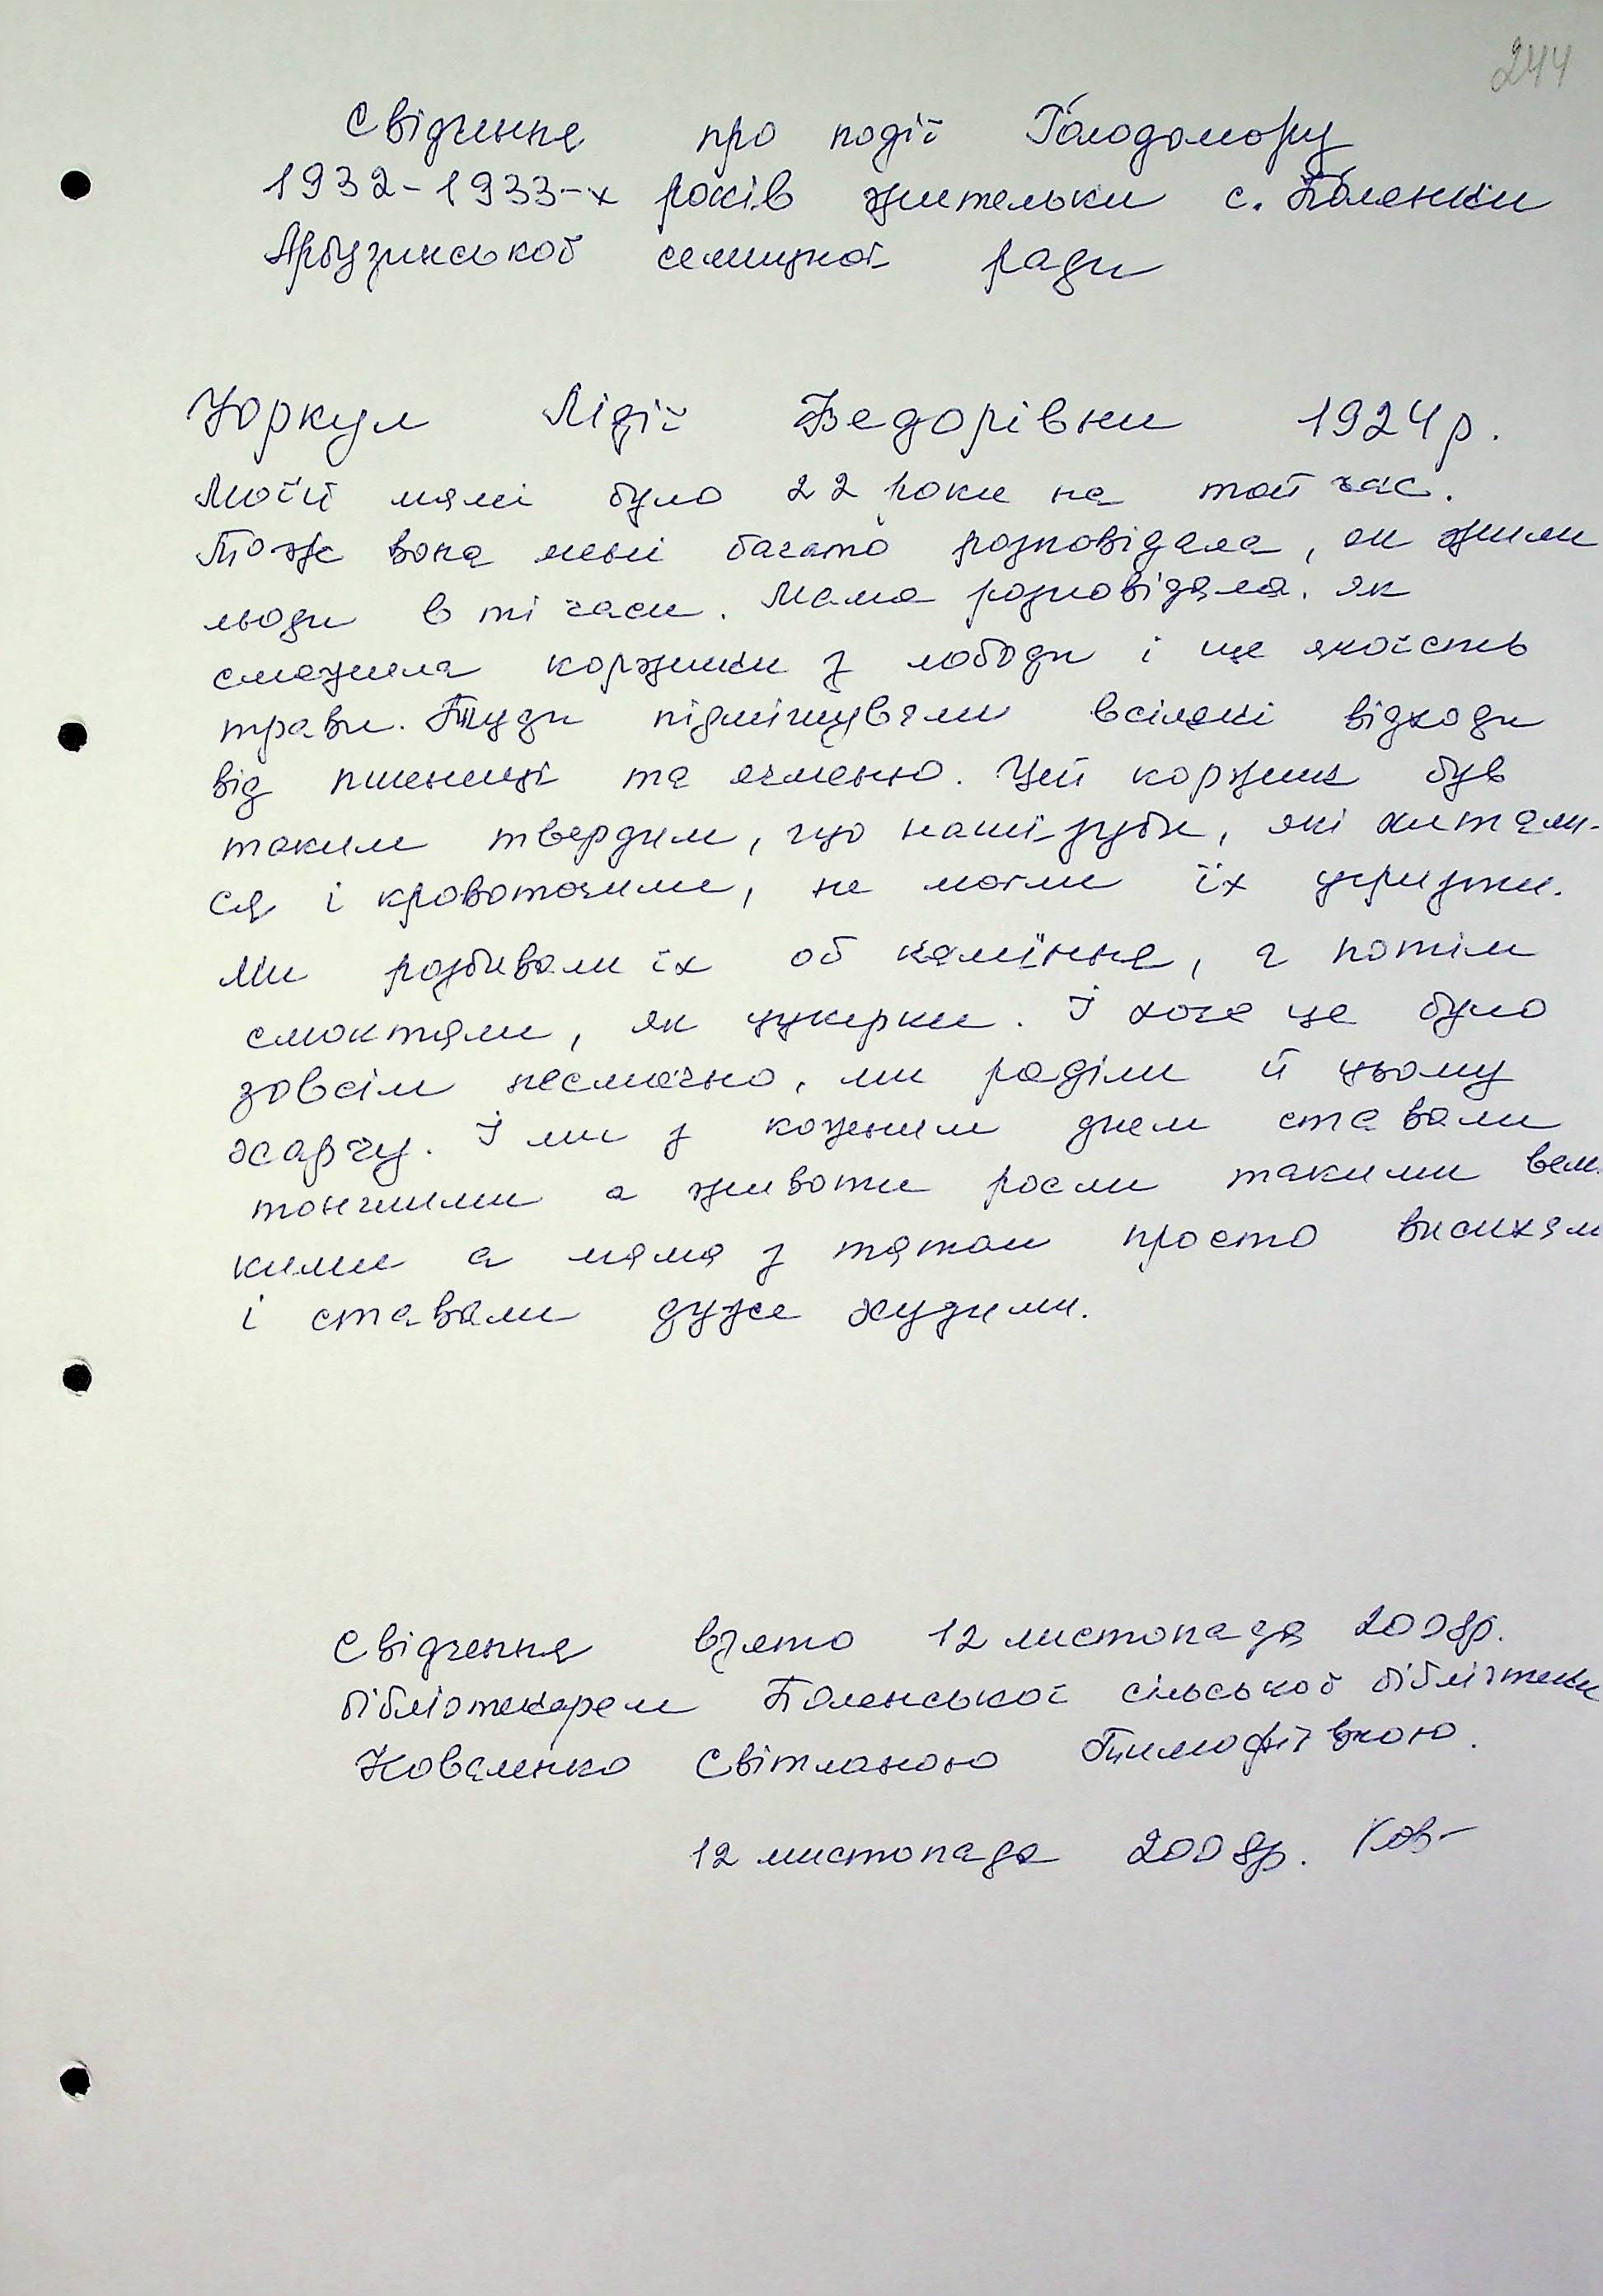 244
Свідчення про події Голодомору
1932-1933-х років жительки с. Полянки
Арбузинської селищної ради
Юркул Лідії Федорівни 1924р.
Моїй мамі було 22 роки на той час.
Тож вона мені багато розповідала, як жили
люди в ті часи. Мама розповідала. як
смажила коржики з лободи і ще якоїсь
трави. Туди підмішували всілякі відходи
від пшениці та ячменю. Цей коржик був
таким твердим, що наші зуби, які хитали-
ся і кровоточили, не могли їх угризти.
Ми розбивали їх об каміння, а потім
смоктали, як цукерки. І хоча це було
зовсім несмачно, ми раділи й цьому
харчу. І ми з кожним днем ставали
тончими а животи росли такими вели
кими а мама з татом просто висихали
і ставали дуже худими.
Свідчення взято 12 листопада 2008р.
бібліотекарем Полянської сільської бібліотеки
Коваленко Світланою Тимофіївною.
12 листопада 2008р. Ков-